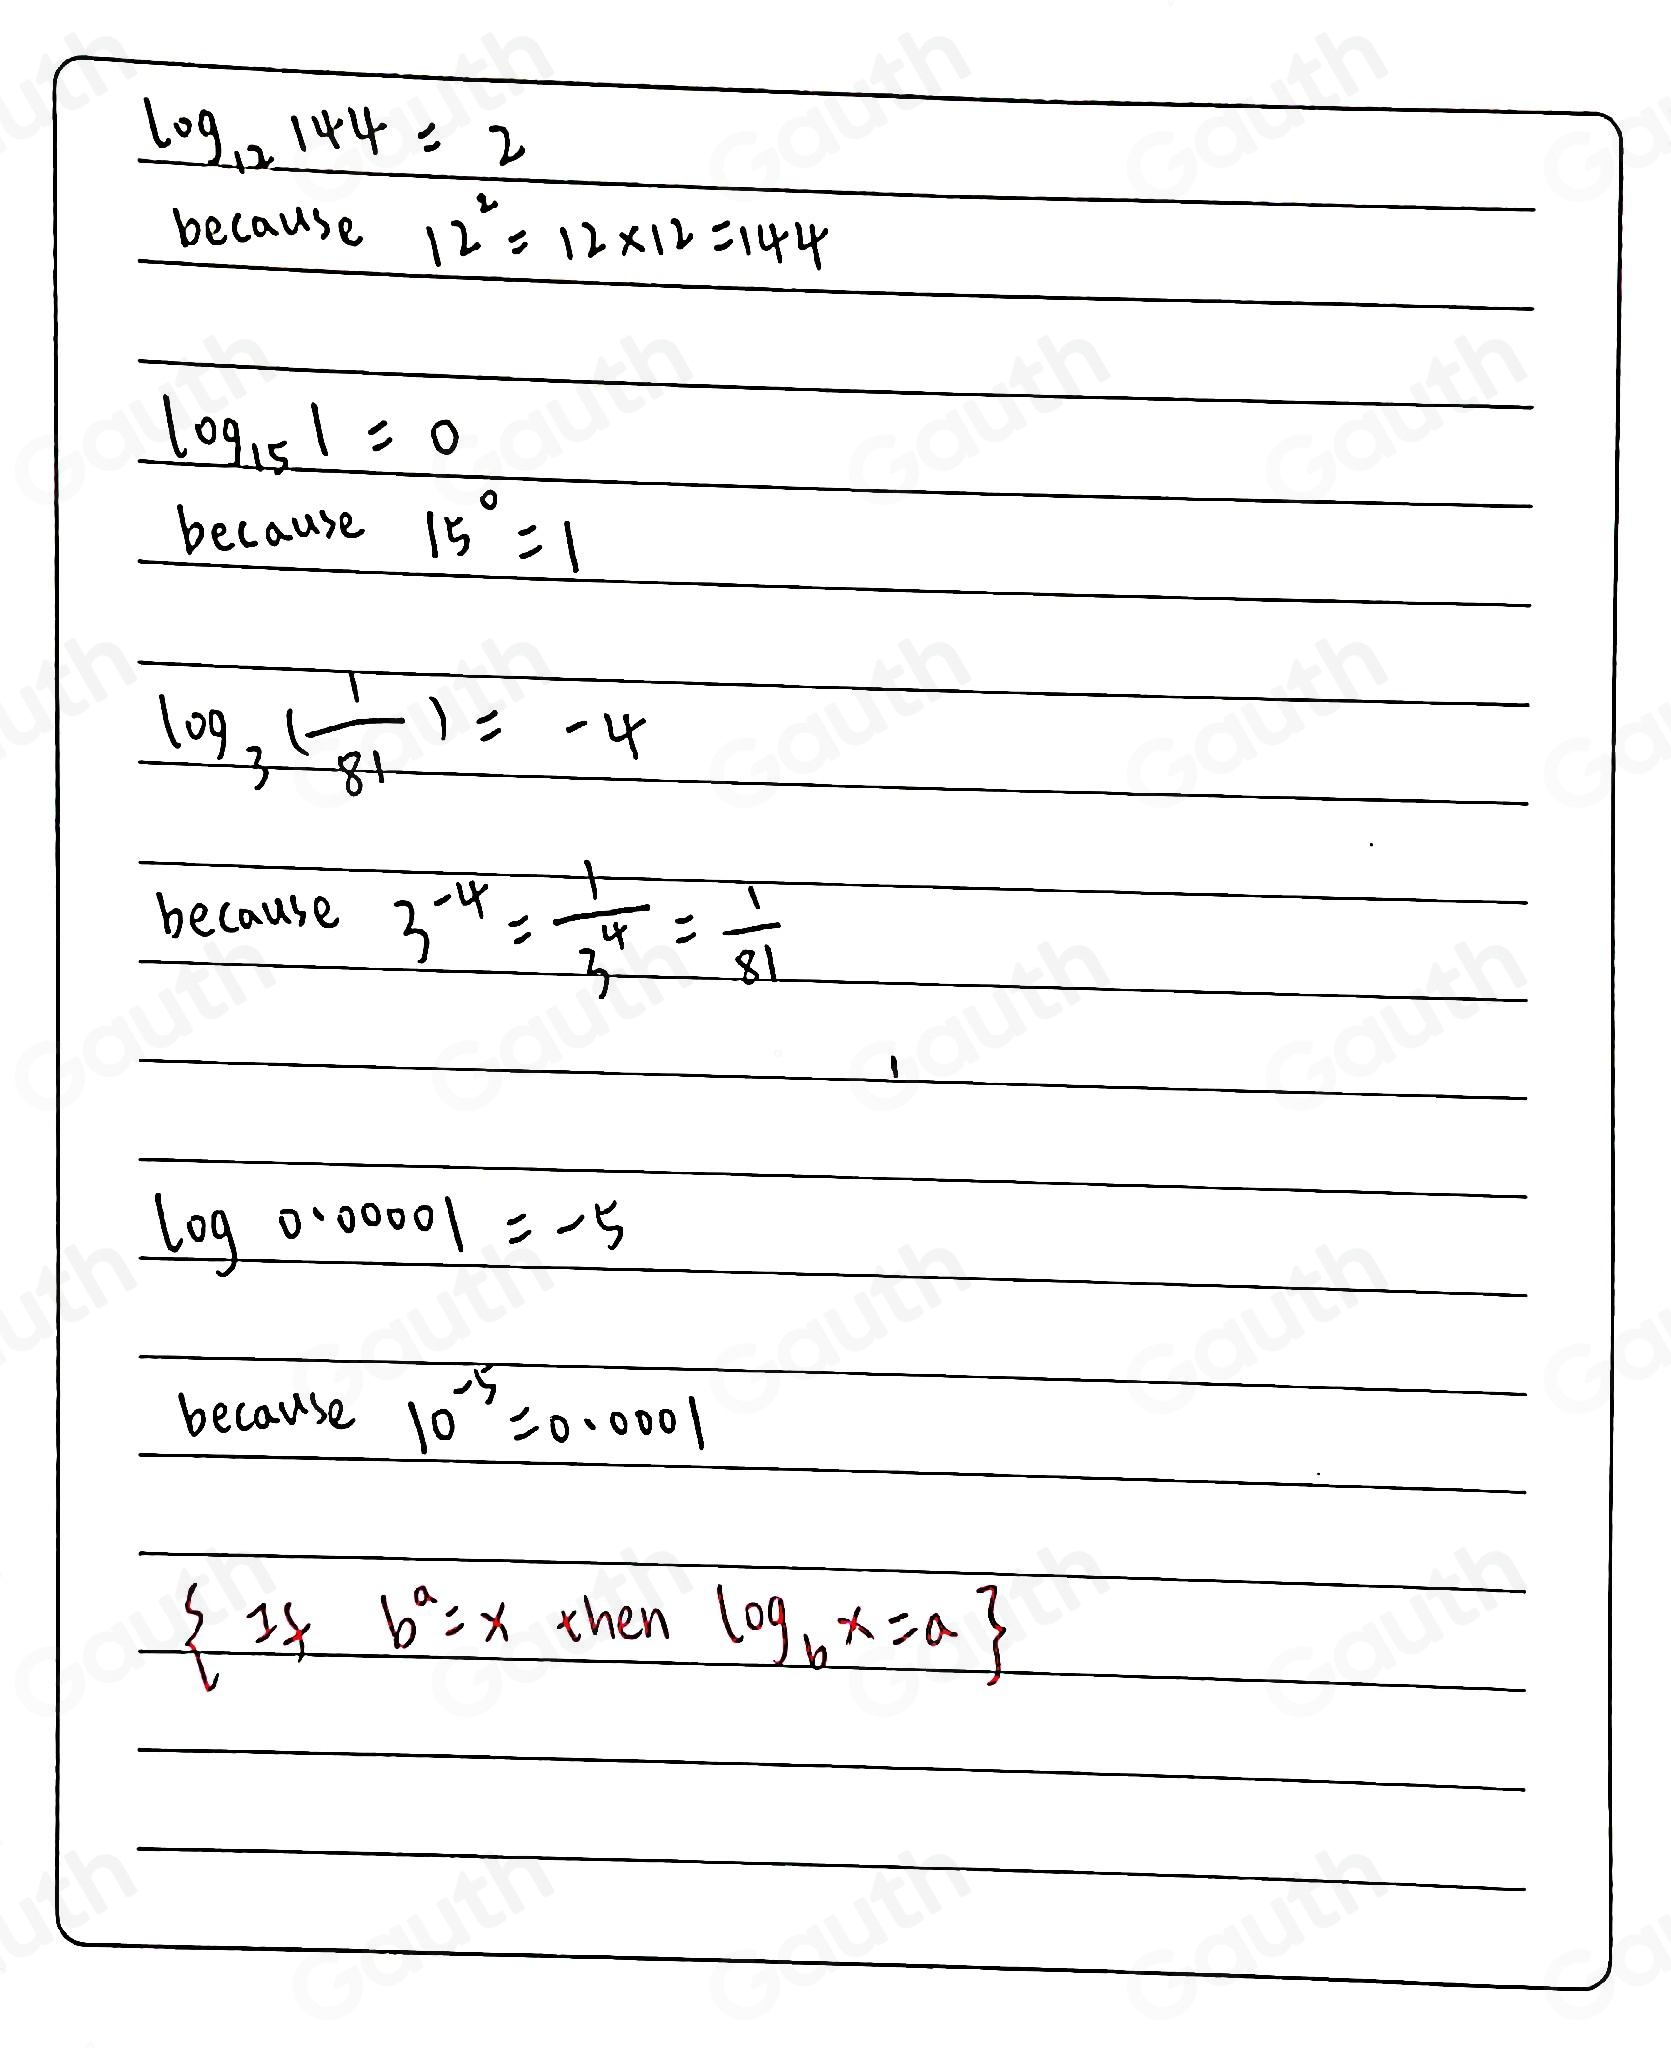 log₁₂ 144 = 2
because 12² = 12×12 = 144
log₁₅ 1 = 0
because 15⁰ = 1
log₃ (1/81) = -4
because 3⁻⁴ = 1/3⁴ = 1/81
log 0.00001 = -5
because 10⁻⁵ = 0.0001
{ If bᵃ = x then log_b x = a }